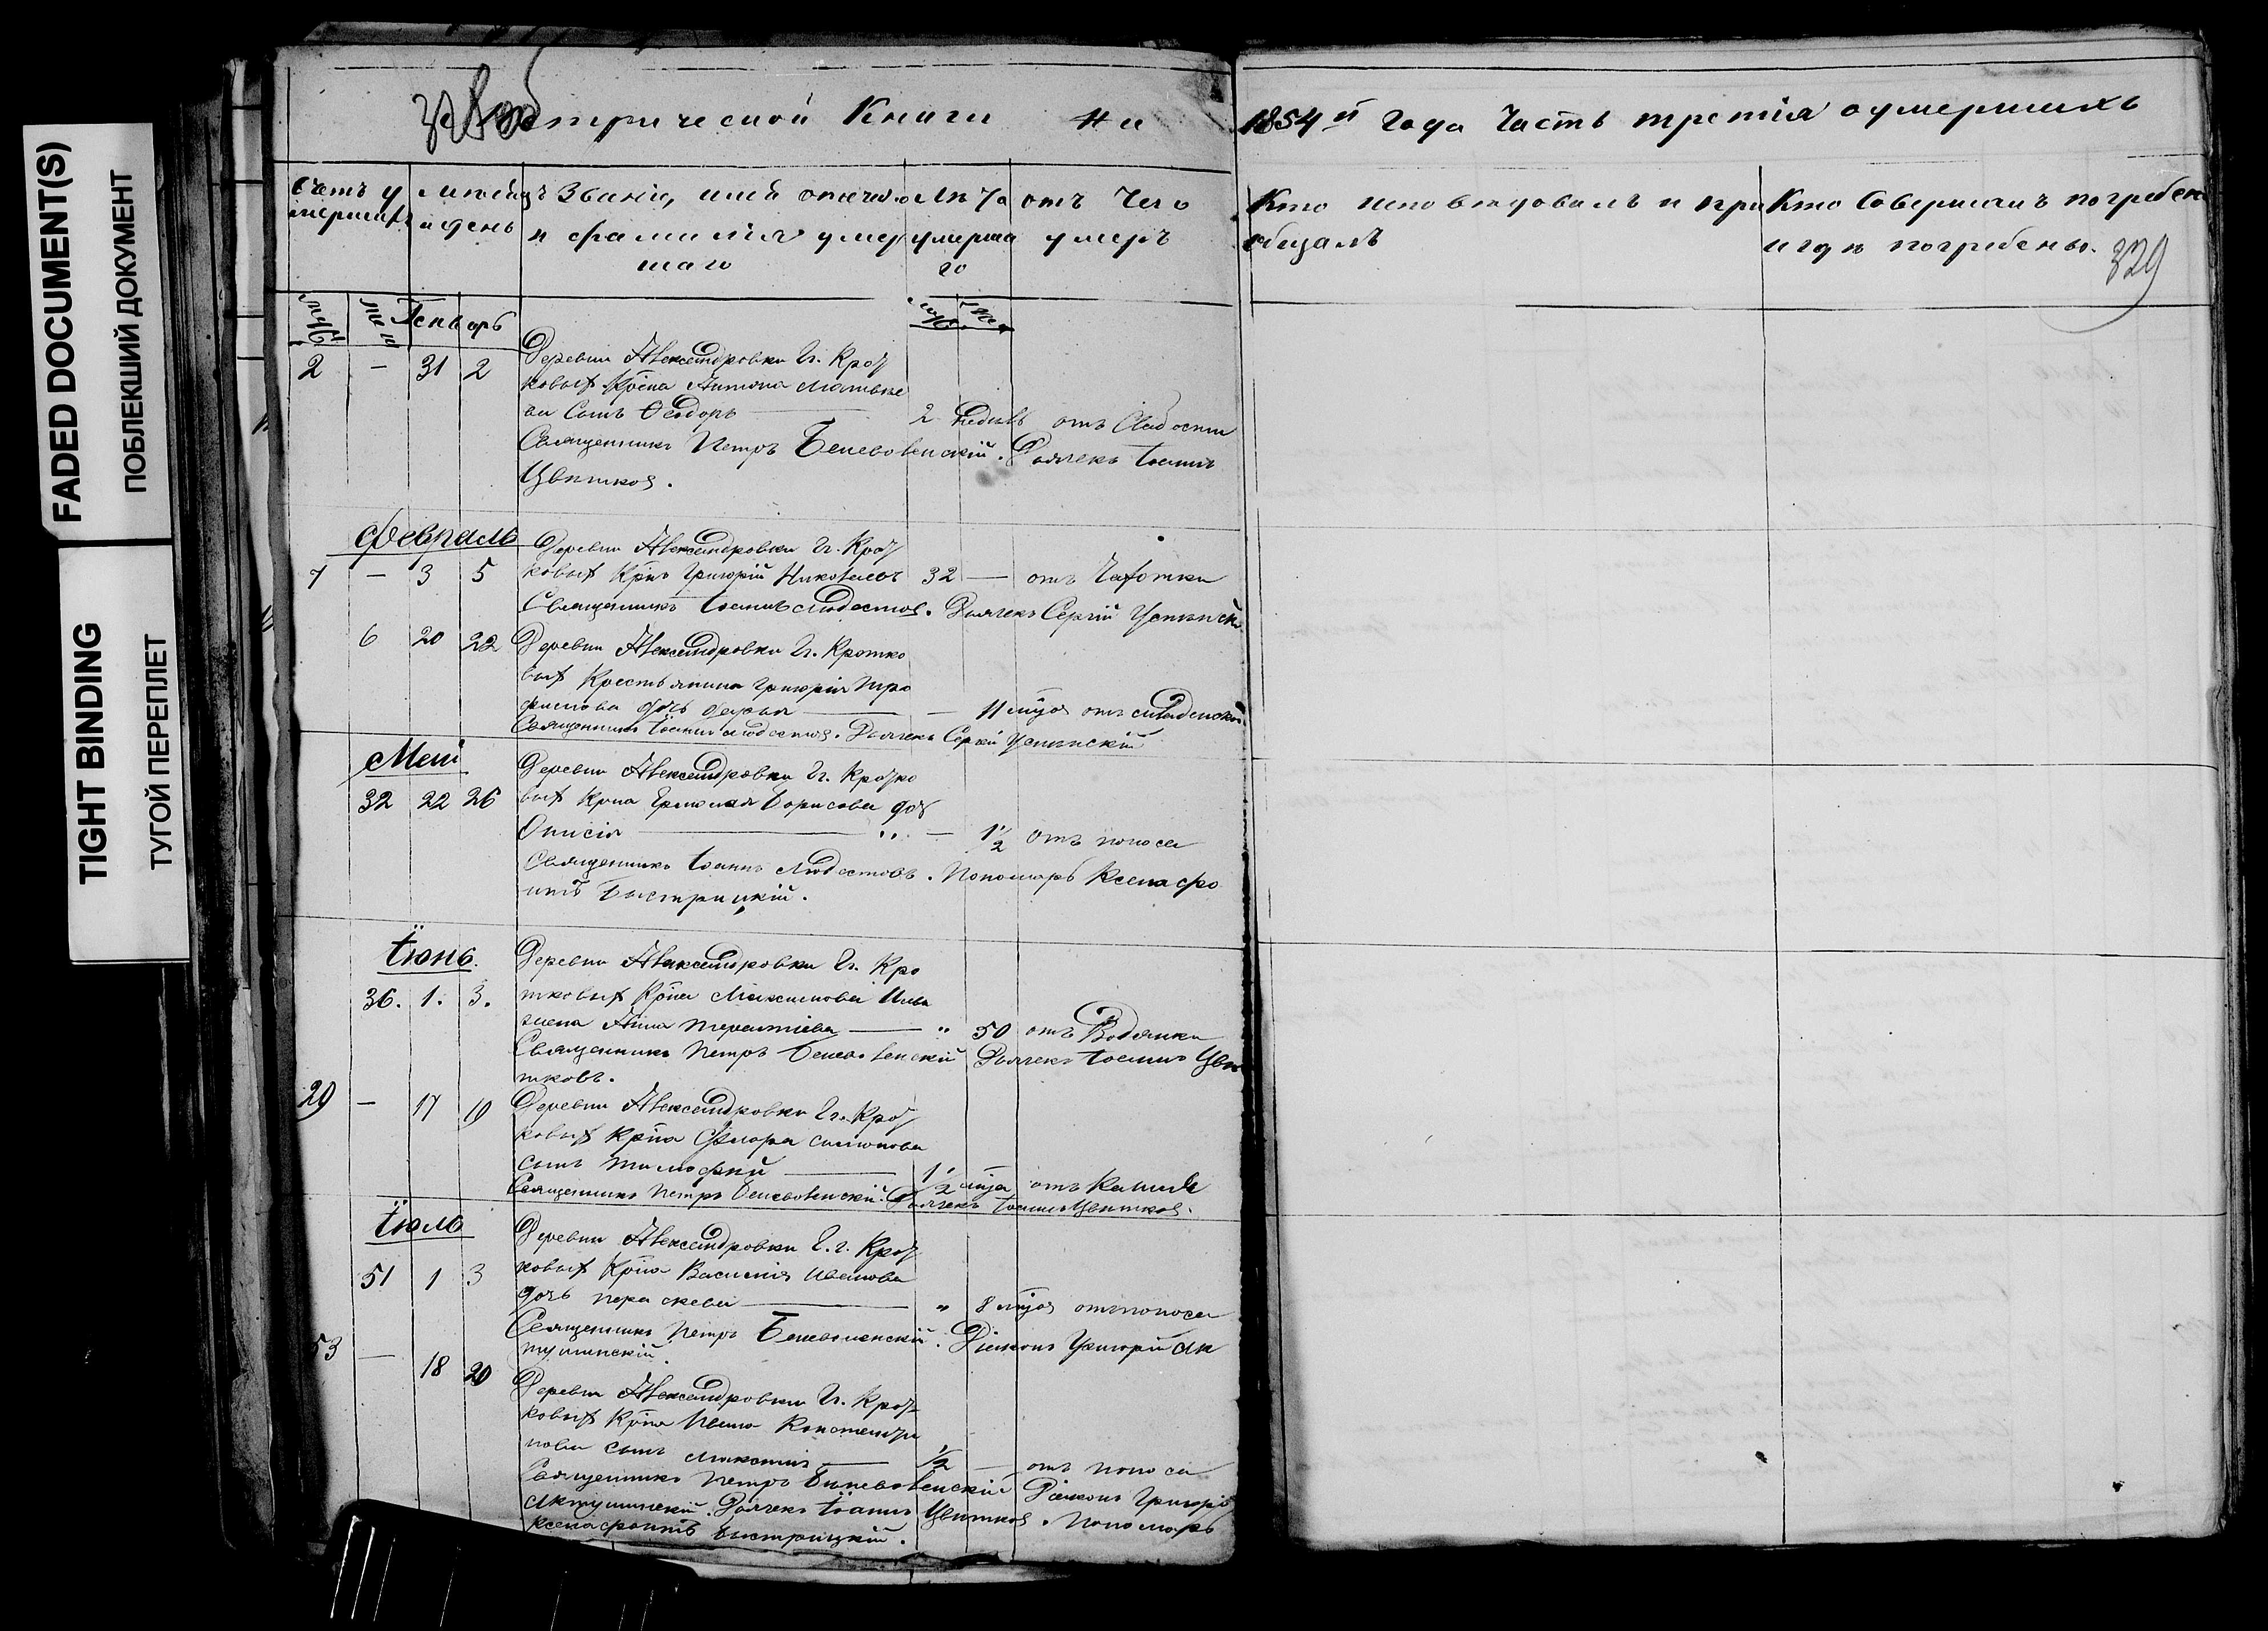 FADED DOCUMENT(S)
ПОБЛЕКШИЙ ДОКУМЕНТ
TIGHT BINDING
ТУГОЙ ПЕРЕПЛЕТ
Метрической Книги на 1854й Года Часть третія о умершихъ
Счетъ умершихъ
мѣсяцъ и день
Званіе, имя отечество и фамилія умершаго
Лѣта умершаго
отъ Чего умеръ
Кто исповѣдовалъ и приобщалъ
Кто Совершалъ погребені
и гдѣ погребены.
329
муж. жен. Генварь
муж. жен.
Деревни Александровки Гг. Крот
2 — 31 2 ковых Крѣна Антона Матвѣе
ва Сынъ Феодоръ — 2 недѣль отъ Слабости
Священникъ Петръ Беневоленскій. Дьячекъ Іоаннъ
Цвѣтков.
Февраль
Деревни Александровки Гг. Крот
7 — 3 5 ковых Крнъ Григорій Николаевъ 32 — отъ Чахотки
Священникъ Іоаннъ Любостов. Дьячекъ Сергій Успенск
6 20 22 Деревни Александровки Гг. Кротко
вых Крестьянина Григорія Тро
фимова дочь Дарья — — 11 мцов отъ младенской
Священникъ Іоаннъ Любостов. Дьячекъ Сергій Успенскій
Маій
Деревни Александровки Гг. Кротко
32 22 26 вых Крна Ермолая Борисова доч
Анисія — „ — 1 1/2 отъ поноса
Священникъ Іоаннъ Любостовъ. Пономарь Ксенофо
нтъ Быстрицкій.
Іюнь.
Деревни Александровки Гг. Кро
36. 1. 3. тковых Крѣна Максимова Ильи
жена Анна Терентіева — „ 50 отъ Водянки
Священникъ Петръ Беневоленскій Дьячекъ Іоаннъ Цвѣ
тковъ.
29 — 17 19 Деревни Александровки Гг. Крот
ковых Крѣна Флора Симонова
сынъ Тимофей — 1 1/2 мца отъ Кашля
Священникъ Петръ Беневоленскій. Дьячекъ Іоаннъ Цвѣтков.
Іюль
Деревни Александровки Г. г. Крот
51 1 3 ковых Крѣна Василія Иванова
дочь Параскева — „ 8 мцов отъ поноса
Священникъ Петръ Беневоленскій. Діаконъ Григорій Ак
тушинскій.
53 — 18 20
Деревни Александровки Гг. Крот
ковых Крѣна Ивана Константи
нова сынъ Максимъ — 1/2 — отъ поноса
Священникъ Петръ Беневоленскій Діаконъ Григорій
Актушинскій. Дьячекъ Іоаннъ Цвѣтков. Пономарь
Ксенофонтъ Быстрицкій.